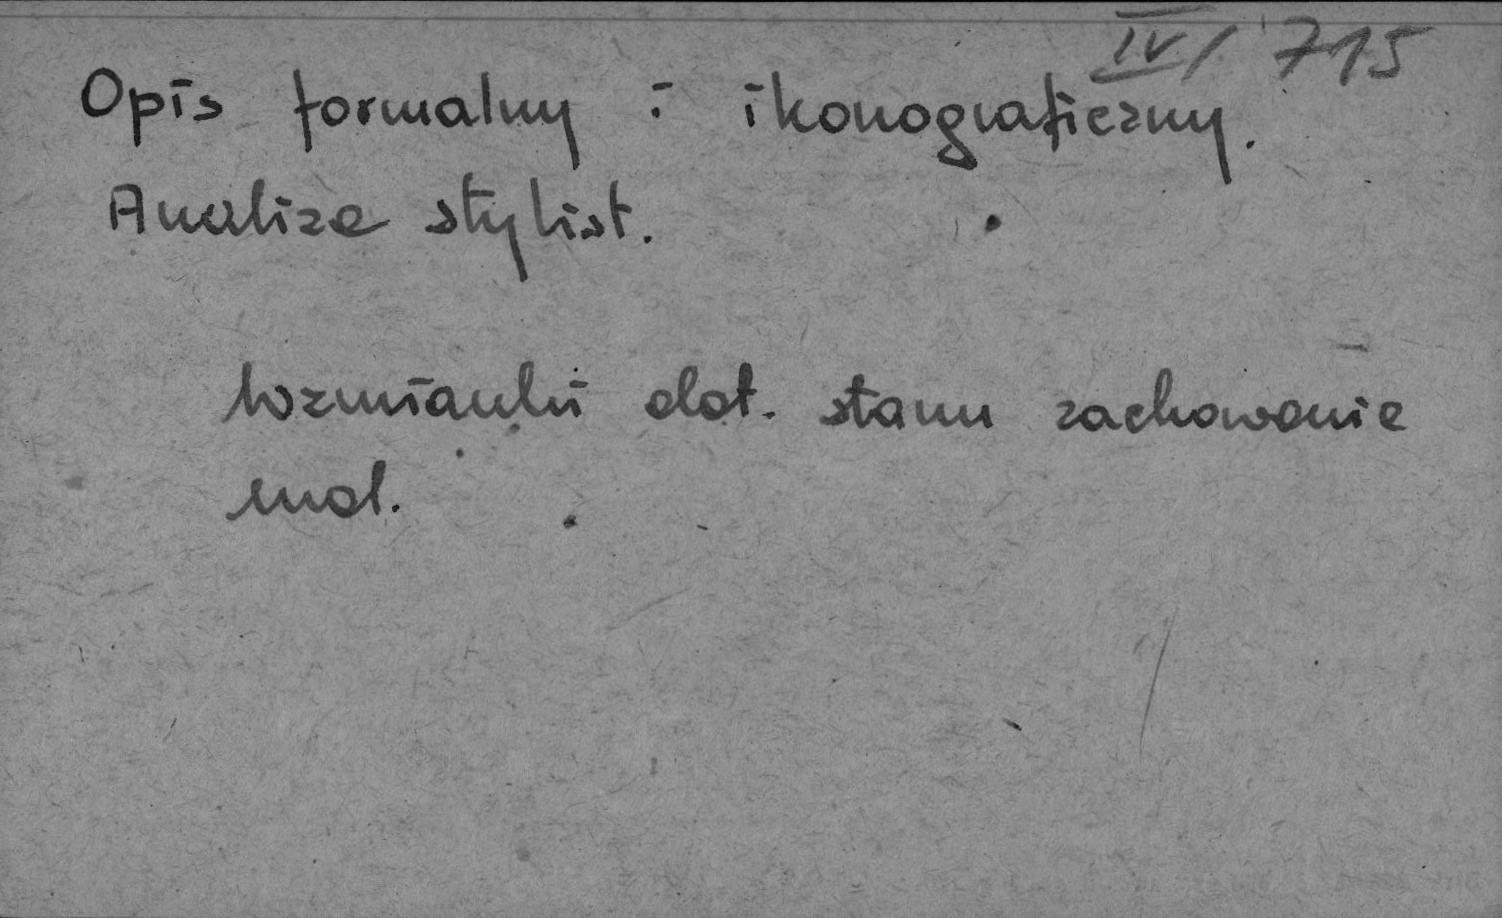 IV/715
Opis formalny i ikonograficzny.
Analiza stylist.
Wzmianki dot. stanu zachowania
mal.